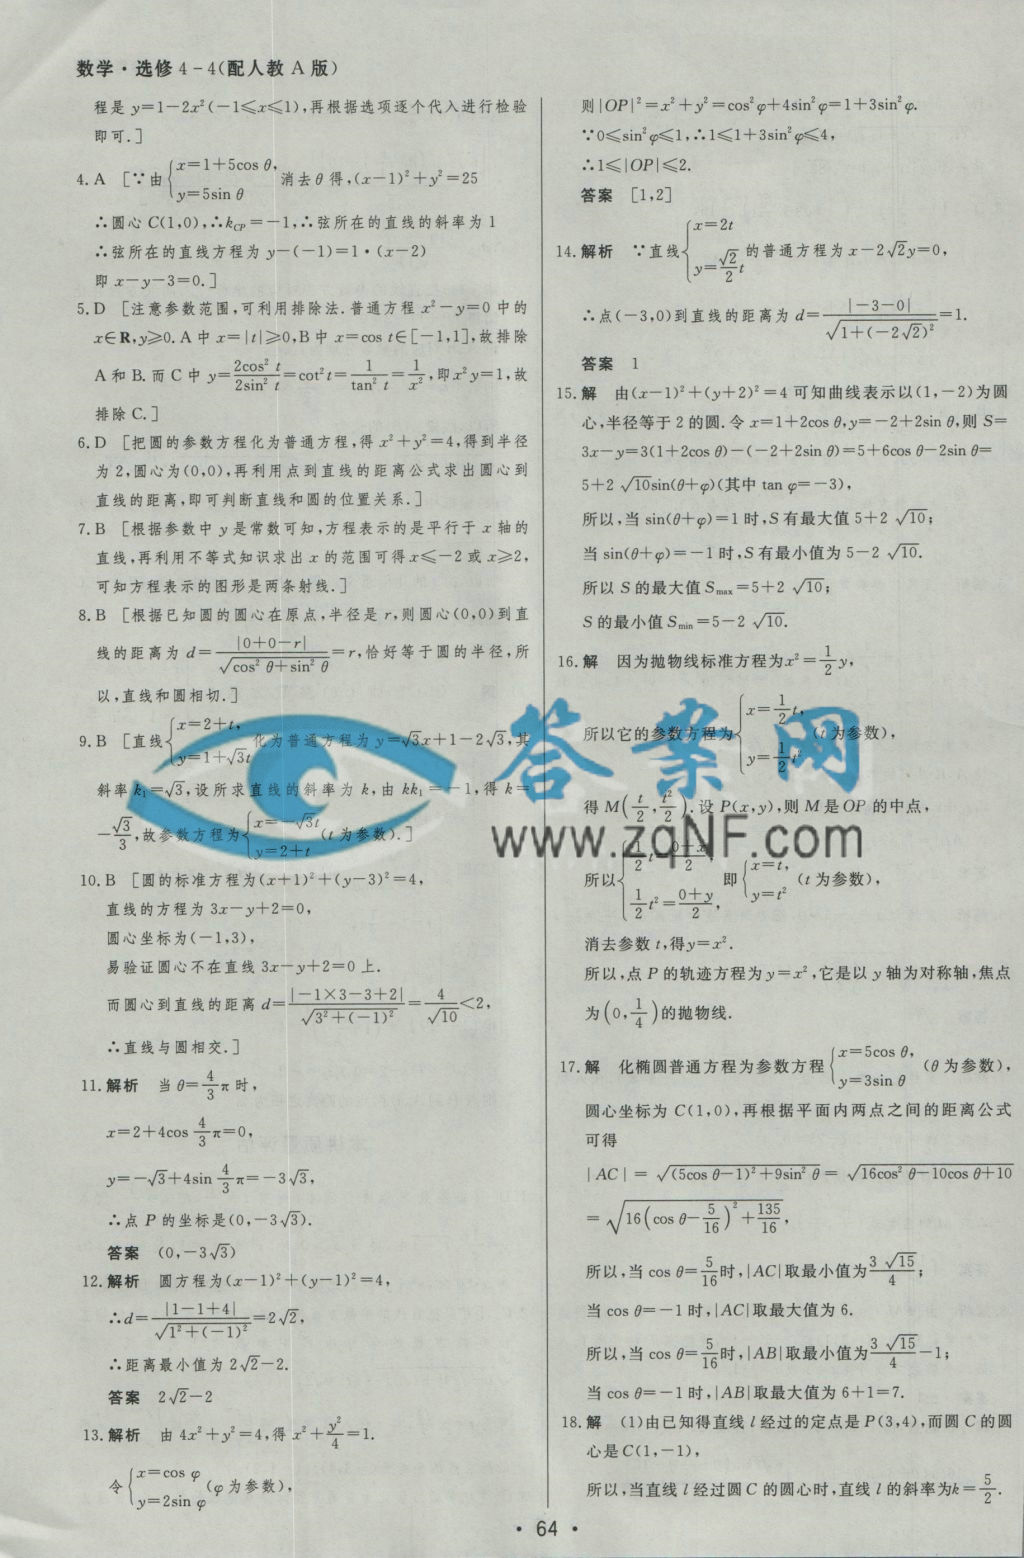 数学·选修4-4(配人教A版)
程是y=1-2x²(-1≤x≤1),再根据选项逐个代入进行检验
即可.]
4.A [∵由{x=1+5cos θ, y=5sin θ 消去θ得,(x-1)²+y²=25
∴圆心C(1,0),∴k_CP=-1,∴弦所在的直线的斜率为1
∴弦所在的直线方程为y-(-1)=1·(x-2)
即x-y-3=0.]
5.D [注意参数范围,可利用排除法.普通方程x²-y=0中的
x∈R,y≥0.A中x=|t|≥0,B中x=cos t∈[-1,1],故排除
A和B.而C中y=2cos² t/2sin² t=cot²t=1/tan² t=1/x²,即x²y=1,故
排除C.]
6.D [把圆的参数方程化为普通方程,得x²+y²=4,得到半径
为2,圆心为(0,0),再利用点到直线的距离公式求出圆心到
直线的距离,即可判断直线和圆的位置关系.]
7.B [根据参数中y是常数可知,方程表示的是平行于x轴的
直线,再利用不等式知识求出x的范围可得x≤-2或x≥2,
可知方程表示的图形是两条射线.]
8.B [根据已知圆的圆心在原点,半径是r,则圆心(0,0)到直
线的距离为d=|0+0-r|/√(cos² θ+sin² θ)=r,恰好等于圆的半径,所
以,直线和圆相切.]
9.B [直线{x=2+t, y=1+√3t 化为普通方程为y=√3x+1-2√3,其
斜率k₁=√3,设所求直线的斜率为k,由kk₁=-1,得k=
-√3/3,故参数方程为{x=-√3t y=2+t (t为参数).]
10.B [圆的标准方程为(x+1)²+(y-3)²=4,
直线的方程为3x-y+2=0,
圆心坐标为(-1,3),
易验证圆心不在直线3x-y+2=0上.
而圆心到直线的距离d=|-1×3-3+2|/√(3²+(-1)²)=4/√10<2,
∴直线与圆相交.]
11.解析 当θ=4/3π时,
x=2+4cos 4/3π=0,
y=-√3+4sin 4/3π=-3√3,
∴点P的坐标是(0,-3√3).
答案 (0,-3√3)
12.解析 圆方程为(x-1)²+(y-1)²=4,
∴d=|1-1+4|/√(1²+(-1)²)=2√2,
∴距离最小值为2√2-2.
答案 2√2-2
13.解析 由4x²+y²=4,得x²+y²/4=1.
令{x=cos φ y=2sin φ (φ为参数),
则|OP|²=x²+y²=cos²φ+4sin²φ=1+3sin²φ.
∵0≤sin²φ≤1,∴1≤1+3sin²φ≤4,
∴1≤|OP|≤2.
答案 [1,2]
14.解析 ∵直线{x=2t y=√2/2t 的普通方程为x-2√2y=0,
∴点(-3,0)到直线的距离为d=|-3-0|/√(1+(-2√2)²)=1.
答案 1
15.解 由(x-1)²+(y+2)²=4可知曲线表示以(1,-2)为圆
心,半径等于2的圆.令x=1+2cos θ,y=-2+2sin θ,则S=
3x-y=3(1+2cos θ)-(-2+2sin θ)=5+6cos θ-2sin θ=
5+2√10sin(θ+φ)(其中tan φ=-3),
所以,当sin(θ+φ)=1时,S有最大值5+2√10;
当sin(θ+φ)=-1时,S有最小值为5-2√10.
所以S的最大值Smax=5+2√10;
S的最小值Smin=5-2√10.
16.解 因为抛物线标准方程为x²=1/2y,
所以它的参数方程为{x=1/2t, y=1/2t² (t为参数),
得M(t/2,t²/2).设P(x,y),则M是OP的中点,
所以{1/2t=0+x/2 1/2t²=0+y/2, 即{x=t, y=t² (t为参数),
消去参数t,得y=x².
所以,点P的轨迹方程为y=x²,它是以y轴为对称轴,焦点
为(0,1/4)的抛物线.
17.解 化椭圆普通方程为参数方程{x=5cos θ, y=3sin θ (θ为参数),
圆心坐标为C(1,0),再根据平面内两点之间的距离公式
可得
|AC|=√((5cos θ-1)²+9sin² θ)=√(16cos² θ-10cos θ+10)
=√(16(cos θ-5/16)²+135/16),
所以,当cos θ=5/16时,|AC|取最小值为3√15/4;
当cos θ=-1时,|AC|取最大值为6.
所以,当cos θ=5/16时,|AB|取最小值为3√15/4-1;
当cos θ=-1时,|AB|取最大值为6+1=7.
18.解 (1)由已知得直线l经过的定点是P(3,4),而圆C的圆
心是C(1,-1),
所以,当直线l经过圆C的圆心时,直线l的斜率为k=5/2.
答案网
www.zqNF.com
·64·